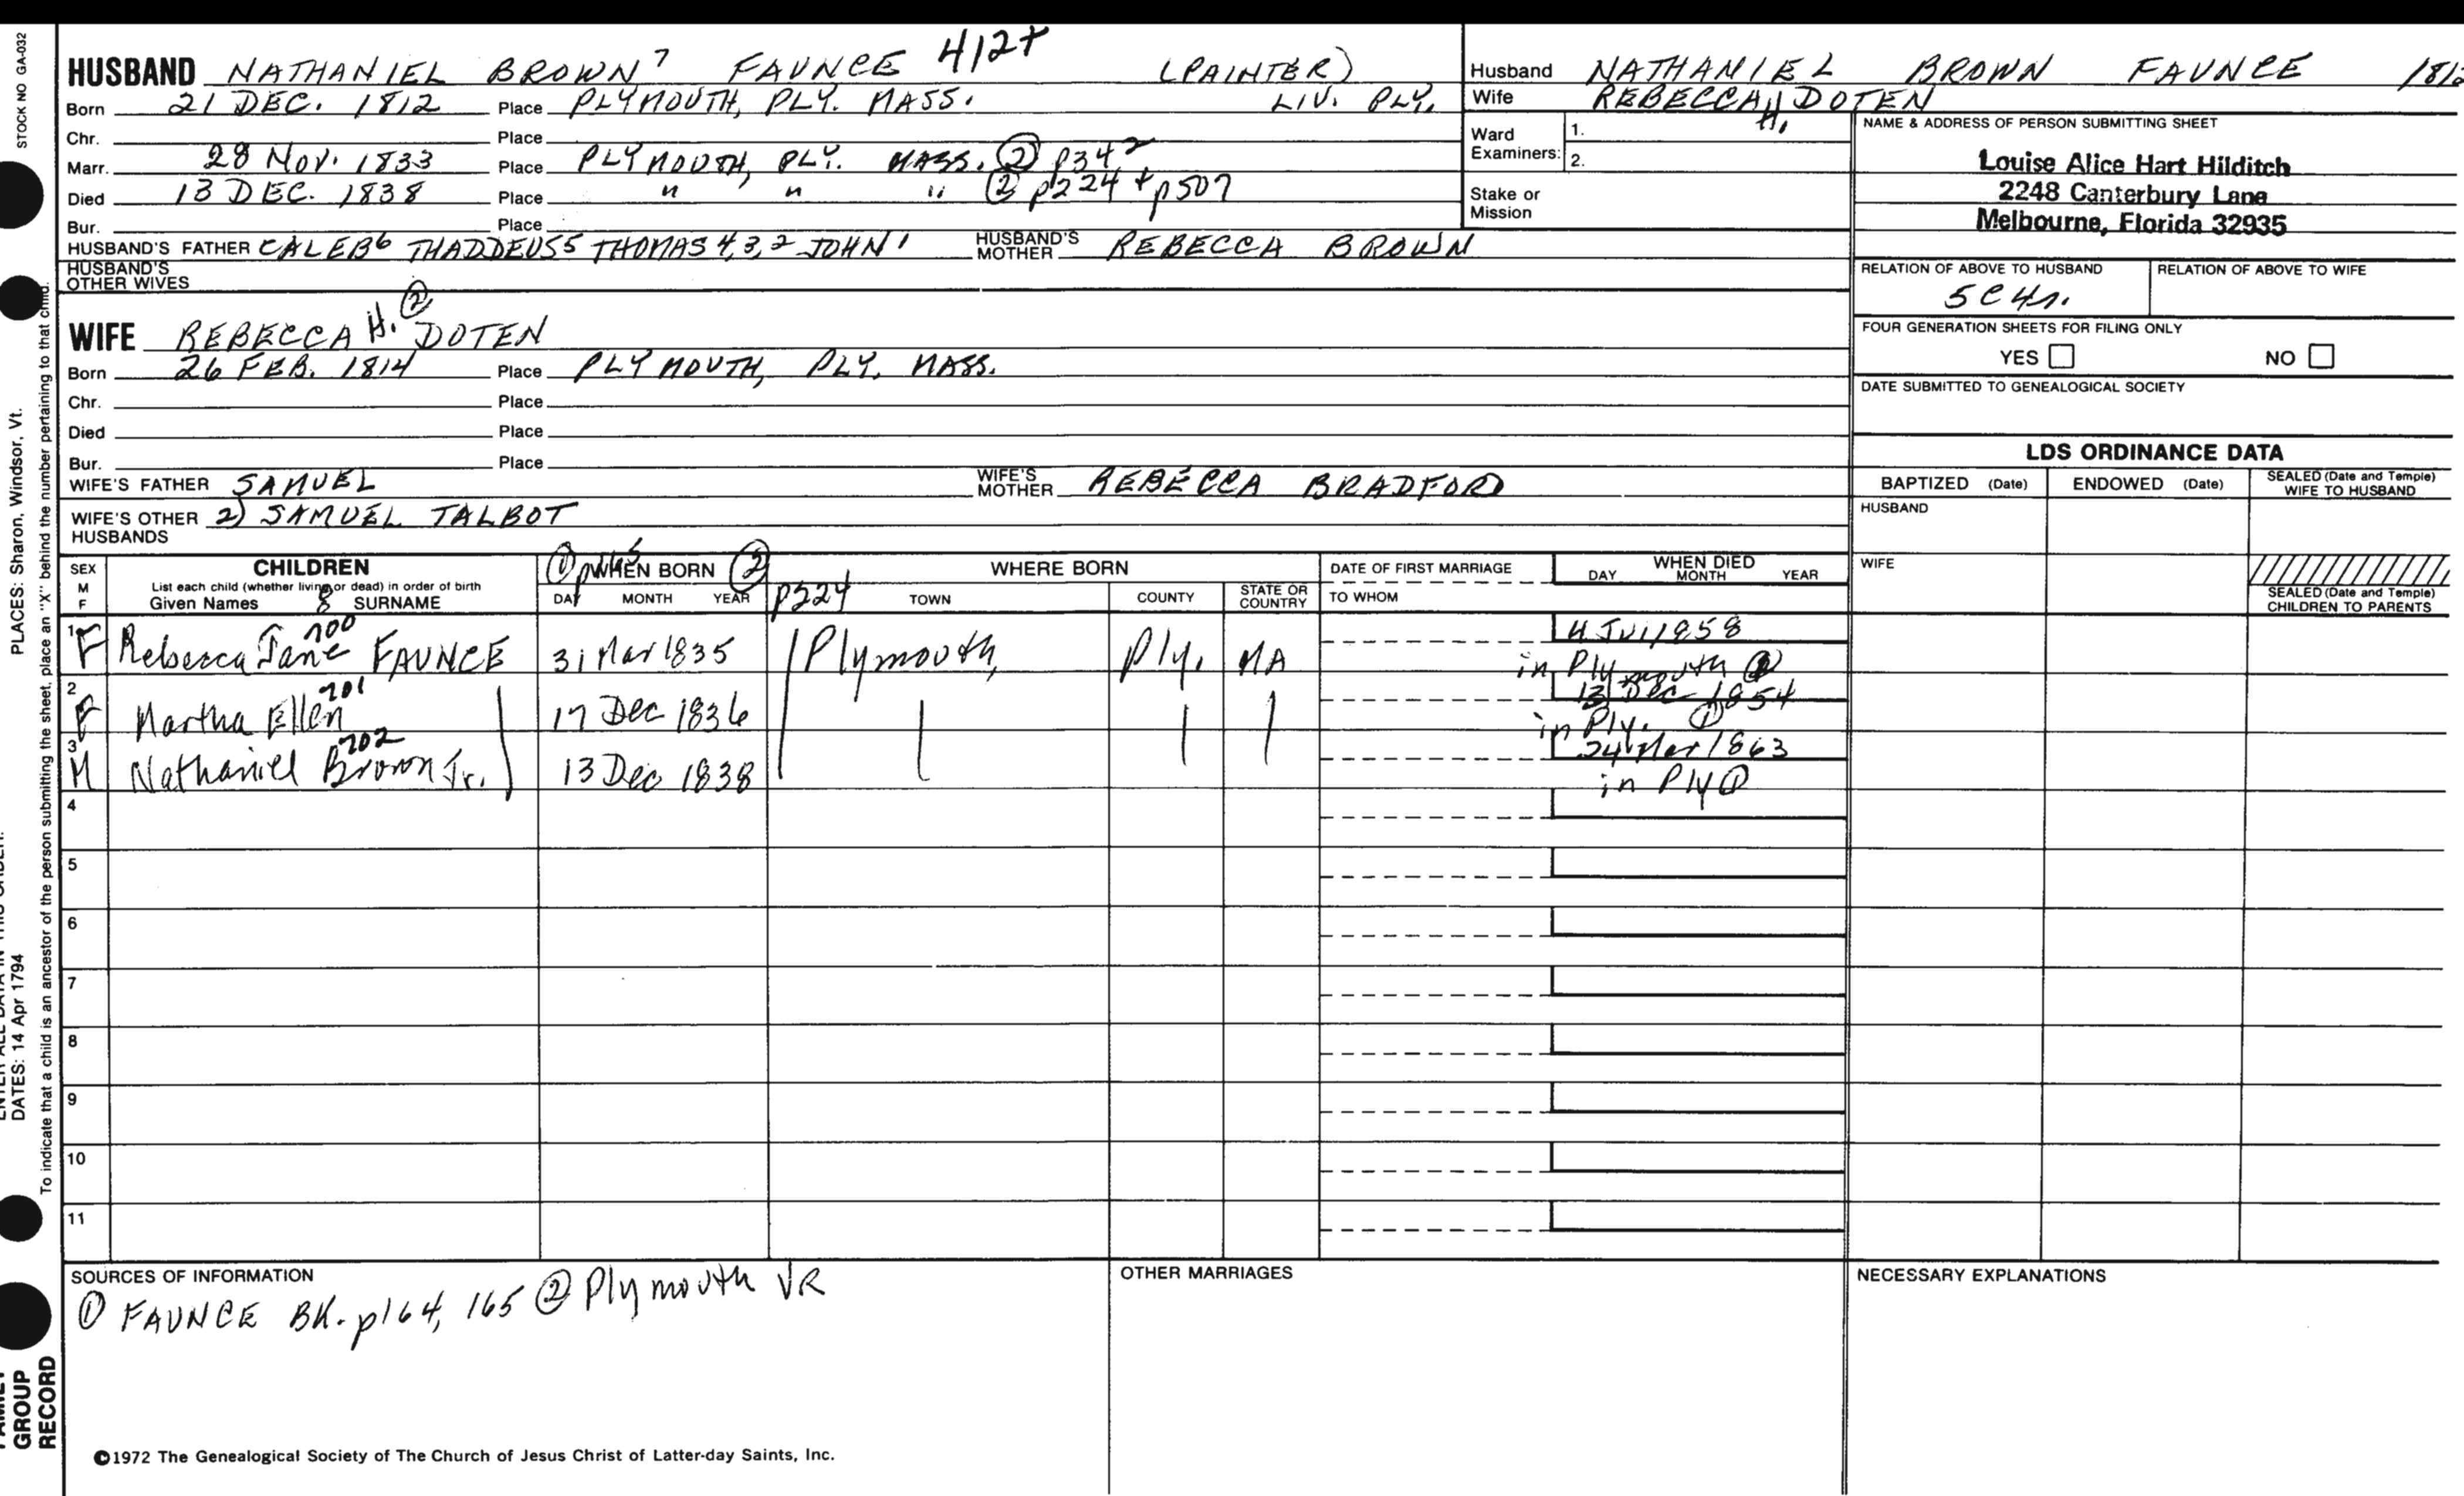 STOCK NO GA-032
HUSBAND NATHANIEL BROWN 7 FAUNCE 412+ (PAINTER)
Born 21 DEC. 1812 Place PLYMOUTH, PLY. MASS. LIV. PLY.
Chr. Place
Marr. 28 NOV. 1833 Place PLYMOUTH, PLY. MASS. ② p342
Died 13 DEC. 1838 Place " " " ② p224 + p507
Bur. Place
HUSBAND'S FATHER CALEB6 THADDEUS5 THOMAS 4,3,2 JOHN1 HUSBAND'S MOTHER REBECCA BROWN
HUSBAND'S OTHER WIVES
WIFE REBECCA H. ② DOTEN
Born 26 FEB. 1814 Place PLYMOUTH, PLY. MASS.
Chr. Place
Died Place
Bur. Place
WIFE'S FATHER SAMUEL WIFE'S MOTHER REBECCA BRADFORD
WIFE'S OTHER HUSBANDS 2) SAMUEL TALBOT
Husband NATHANIEL BROWN FAUNCE
Wife REBECCA H. DOTEN
Ward Examiners: 1.
2.
Stake or Mission
NAME & ADDRESS OF PERSON SUBMITTING SHEET
Louise Alice Hart Hilditch
2248 Canterbury Lane
Melbourne, Florida 32935
RELATION OF ABOVE TO HUSBAND RELATION OF ABOVE TO WIFE
5C4r.
FOUR GENERATION SHEETS FOR FILING ONLY
YES NO
DATE SUBMITTED TO GENEALOGICAL SOCIETY
LDS ORDINANCE DATA
BAPTIZED (Date) ENDOWED (Date) SEALED (Date and Temple) WIFE TO HUSBAND
HUSBAND
WIFE
SEALED (Date and Temple) CHILDREN TO PARENTS
SEX M F CHILDREN WHEN BORN ② WHERE BORN DATE OF FIRST MARRIAGE WHEN DIED
List each child (whether living or dead) in order of birth
Given Names 8 SURNAME DAY MONTH YEAR p224 TOWN COUNTY STATE OR COUNTRY TO WHOM DAY MONTH YEAR
1 F Rebecca Jane 700 FAUNCE 31 Mar 1835 Plymouth, Ply. MA 4 Jul 1858
in Plymouth ①
2 F Martha Ellen 701 17 Dec 1836 13 Dec 1854
in Ply. ①
3 M Nathaniel Brown Jr. 702 13 Dec 1838 24 Mar 1863
in Ply ①
4
5
6
7
8
9
10
11
SOURCES OF INFORMATION
① FAUNCE BK. p164, 165 ② Plymouth VR
OTHER MARRIAGES
NECESSARY EXPLANATIONS
©1972 The Genealogical Society of The Church of Jesus Christ of Latter-day Saints, Inc.
PLACES: Sharon, Windsor, Vt.
DATES: 14 Apr 1794
To indicate that a child is an ancestor of the person submitting the sheet, place an "X" behind the number pertaining to that child.
GROUP
RECORD